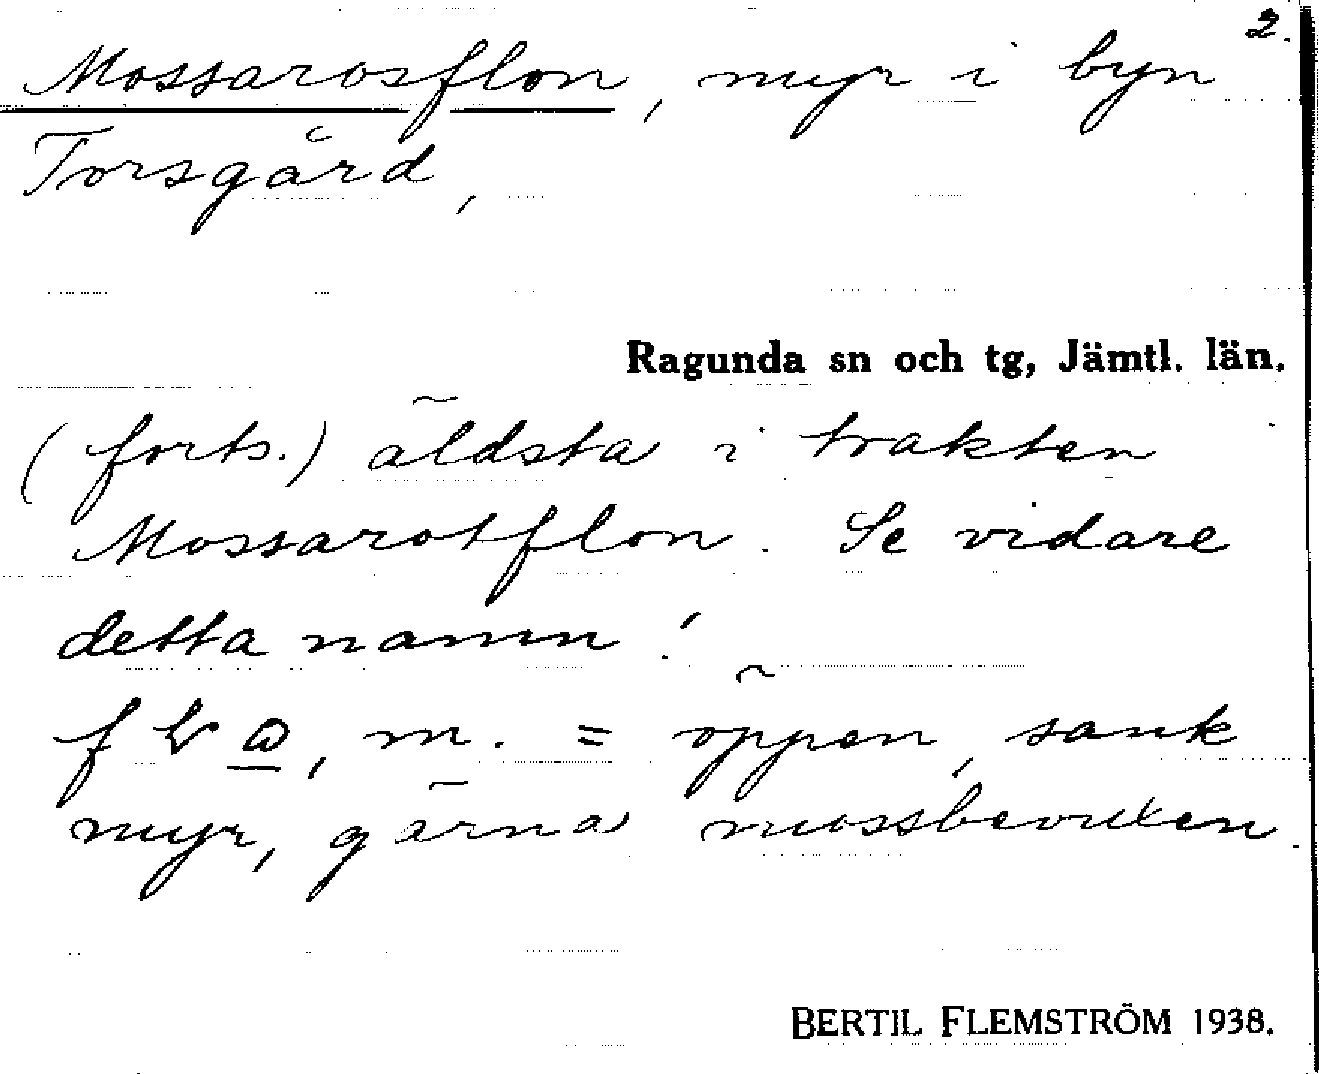 2.
Mossarosflon, myr i byn
Torsgård,
Ragunda sn och tg, Jämtl. län.
(forts.) äldsta i trakten
Mossarotflon. Se vidare
detta namn!
m. = öppen, sank
myr, gärna mossbevuxen.
BERTIL FLEMSTRÖM 1938.